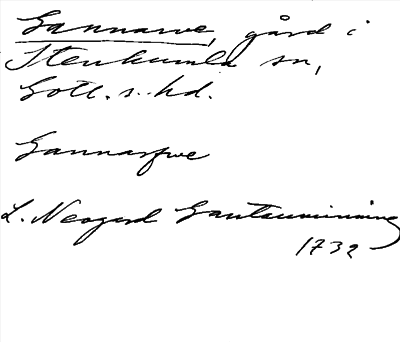 Gannarve, gård i
Stenkumla sn,
Gotl. s. hd.
Gannarfve
L. Neogard Gautauminning
1732